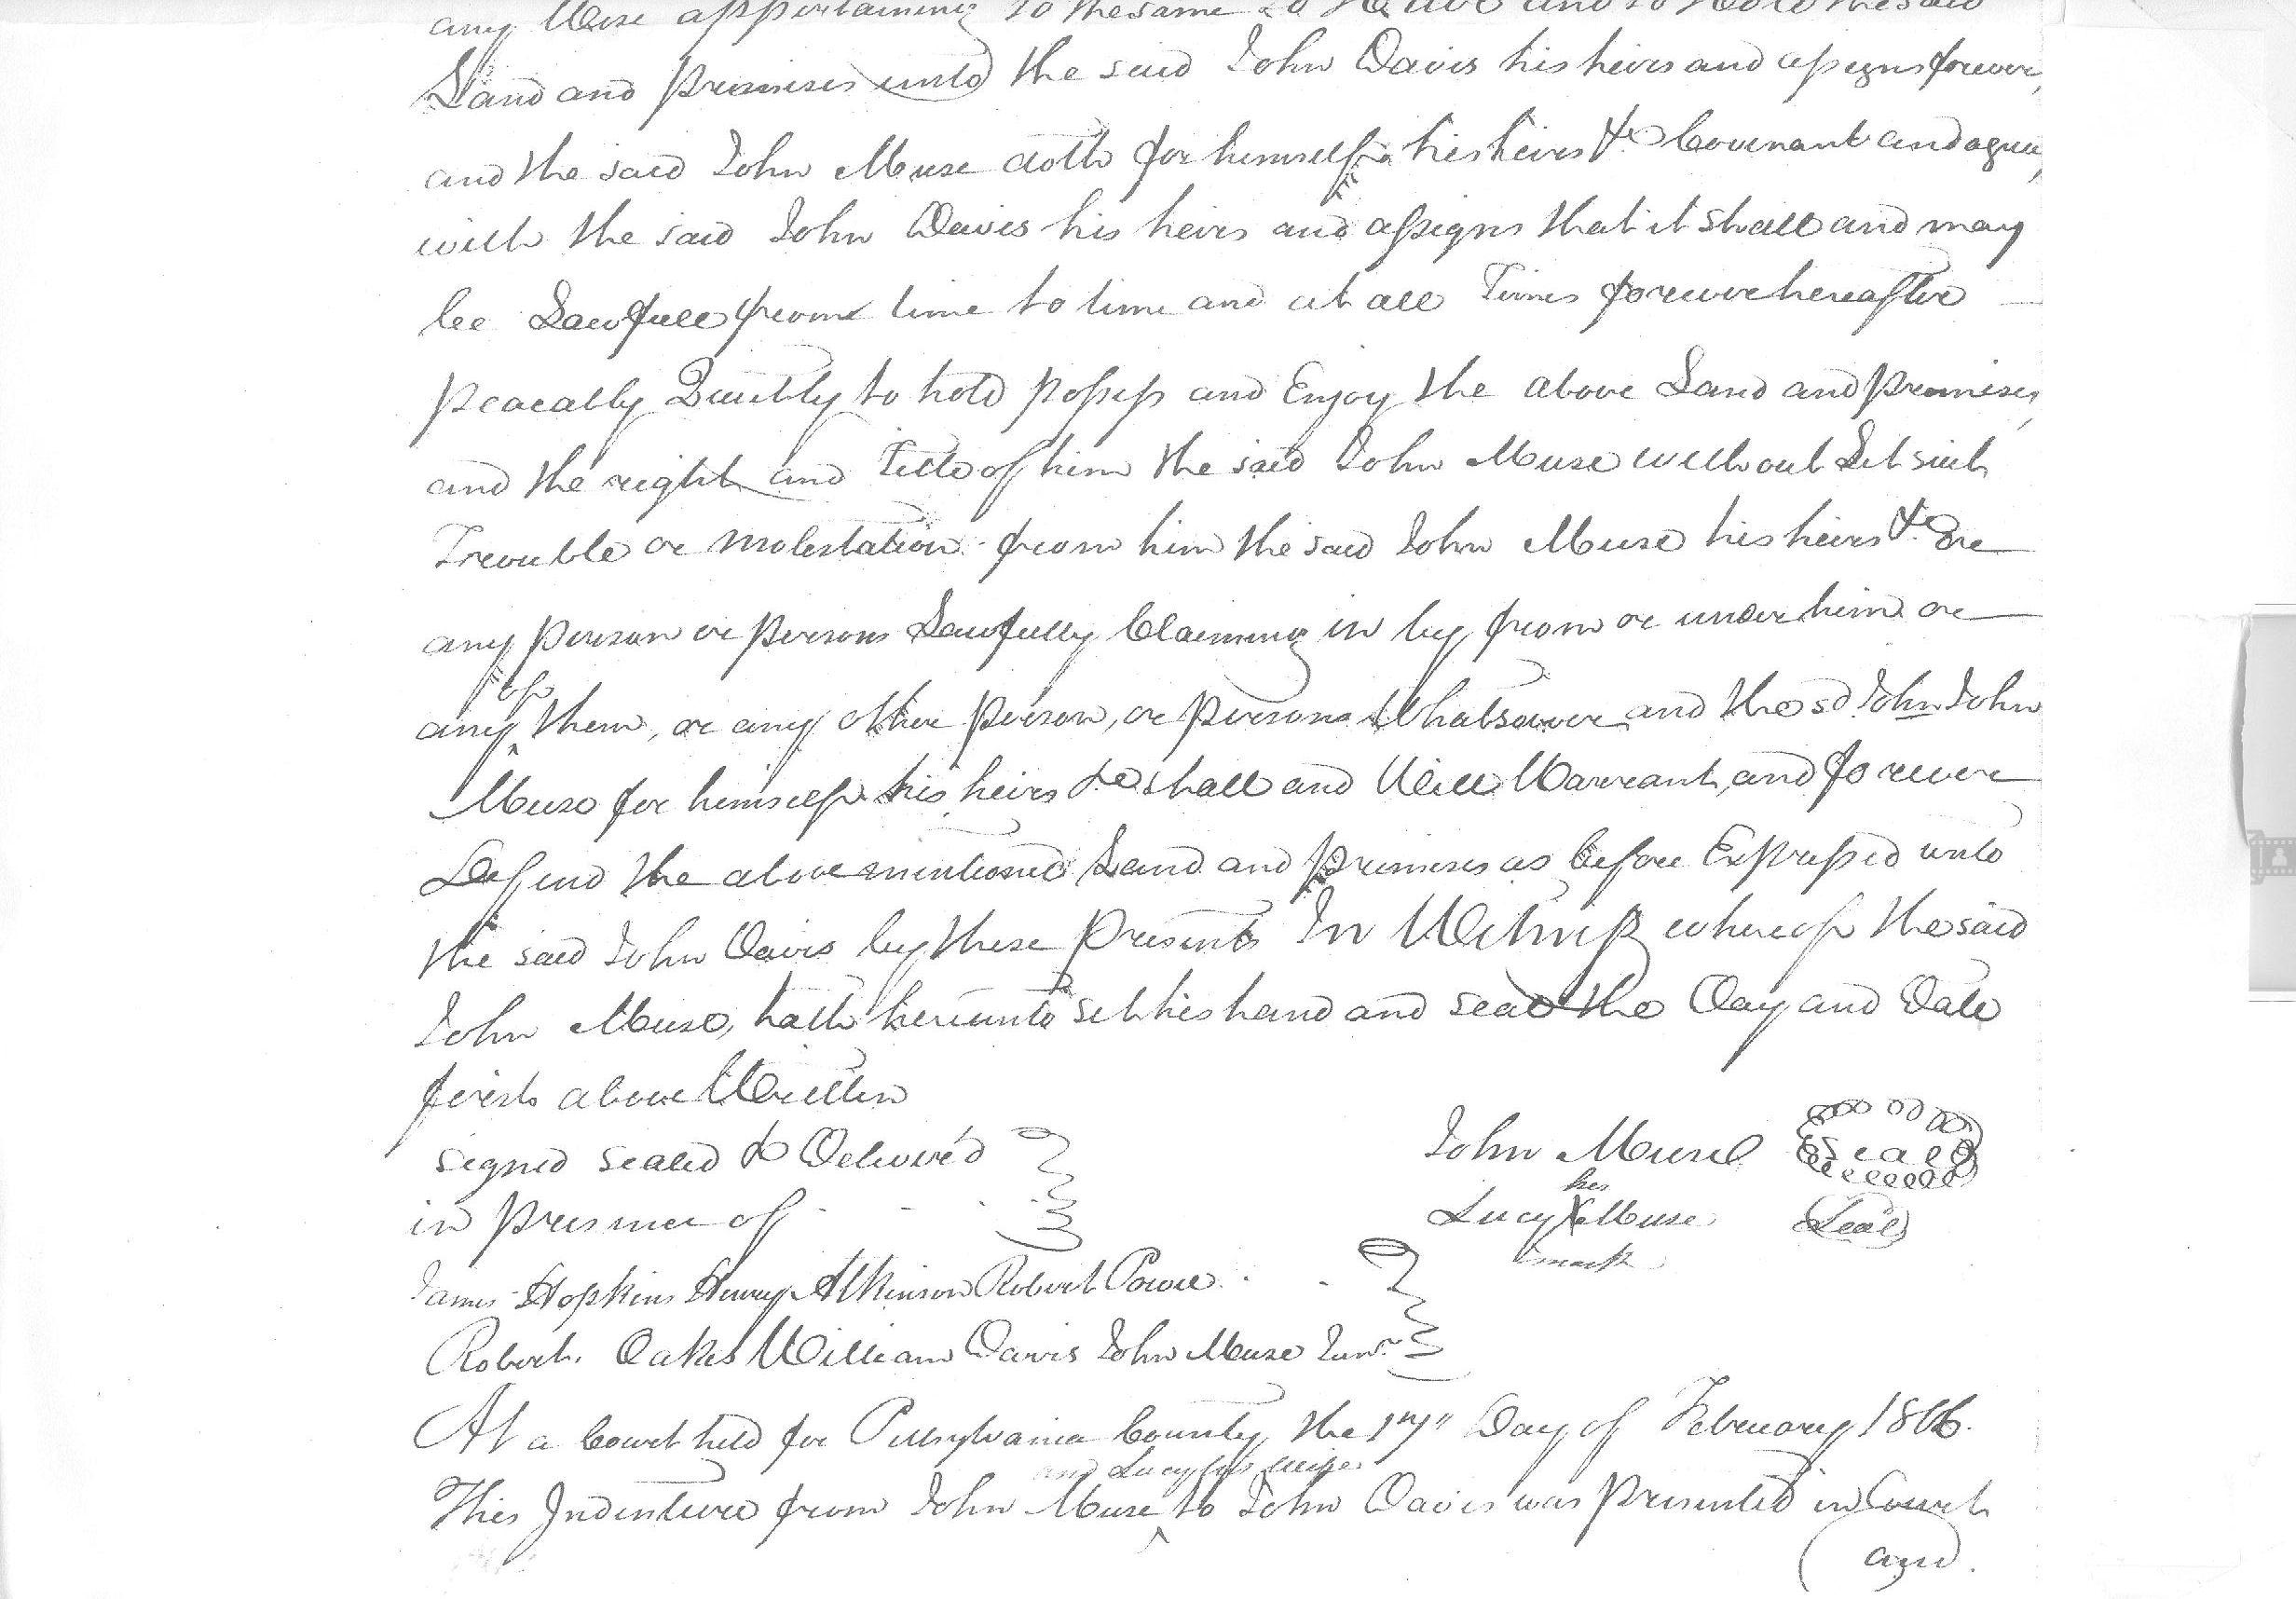 any Wise appertaining to the same To Have and to Hold the said
Land and premises unto the said John Davis his heirs and assigns forever,
and the said John Muse doth for himself his heirs &c Covenant and agree,
with the said John Davis his heirs and assigns that it shall and may
be Lawfull from time to time and at all Times forever hereafter
peacably Quietly to hold possess and Enjoy the above Land and premises,
and the right and Title of him the said John Muse without Let suit
Trouble or molestation from him the said John Muse his heirs &c Or
any person or persons Lawfully Claiming in by from or under him or
any of them, or any other person, or persons Whatsoever and the sd John John
Muse for himself his heirs &c shall and Will Warrant, and forever
Defend the above mentioned Land and premises as before Expressed unto
the said John Davis by these presents In Witness whereof the said
John Muse, hath hereunto set his hand and seal the Day and Date
first above Written
signed sealed & Deliver'd
in presence of
John Muse Seal
Lucy her X mark Muse Seal
James Hopkins Henry Atkinson Robert
Robert Oakes William Davis John Muse Junr
At a Court held for Pittsylvania County the 17" Day of February
This Indenture from John Muse and Lucy his wife to John Davis was presented in Court
and